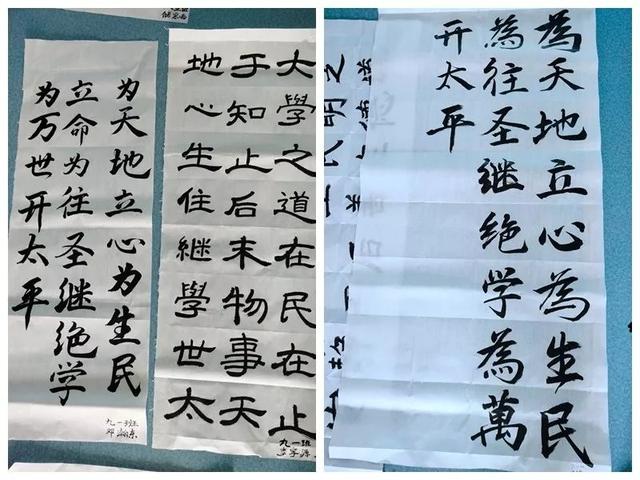 为天地立心为生民
立命为往圣继绝学
为万世开太平
九一班
大學之道在民在止
于知止后末物事天
地心生住継學世太
九一班
為天地立心為生民
為往圣继绝学為萬
开太平